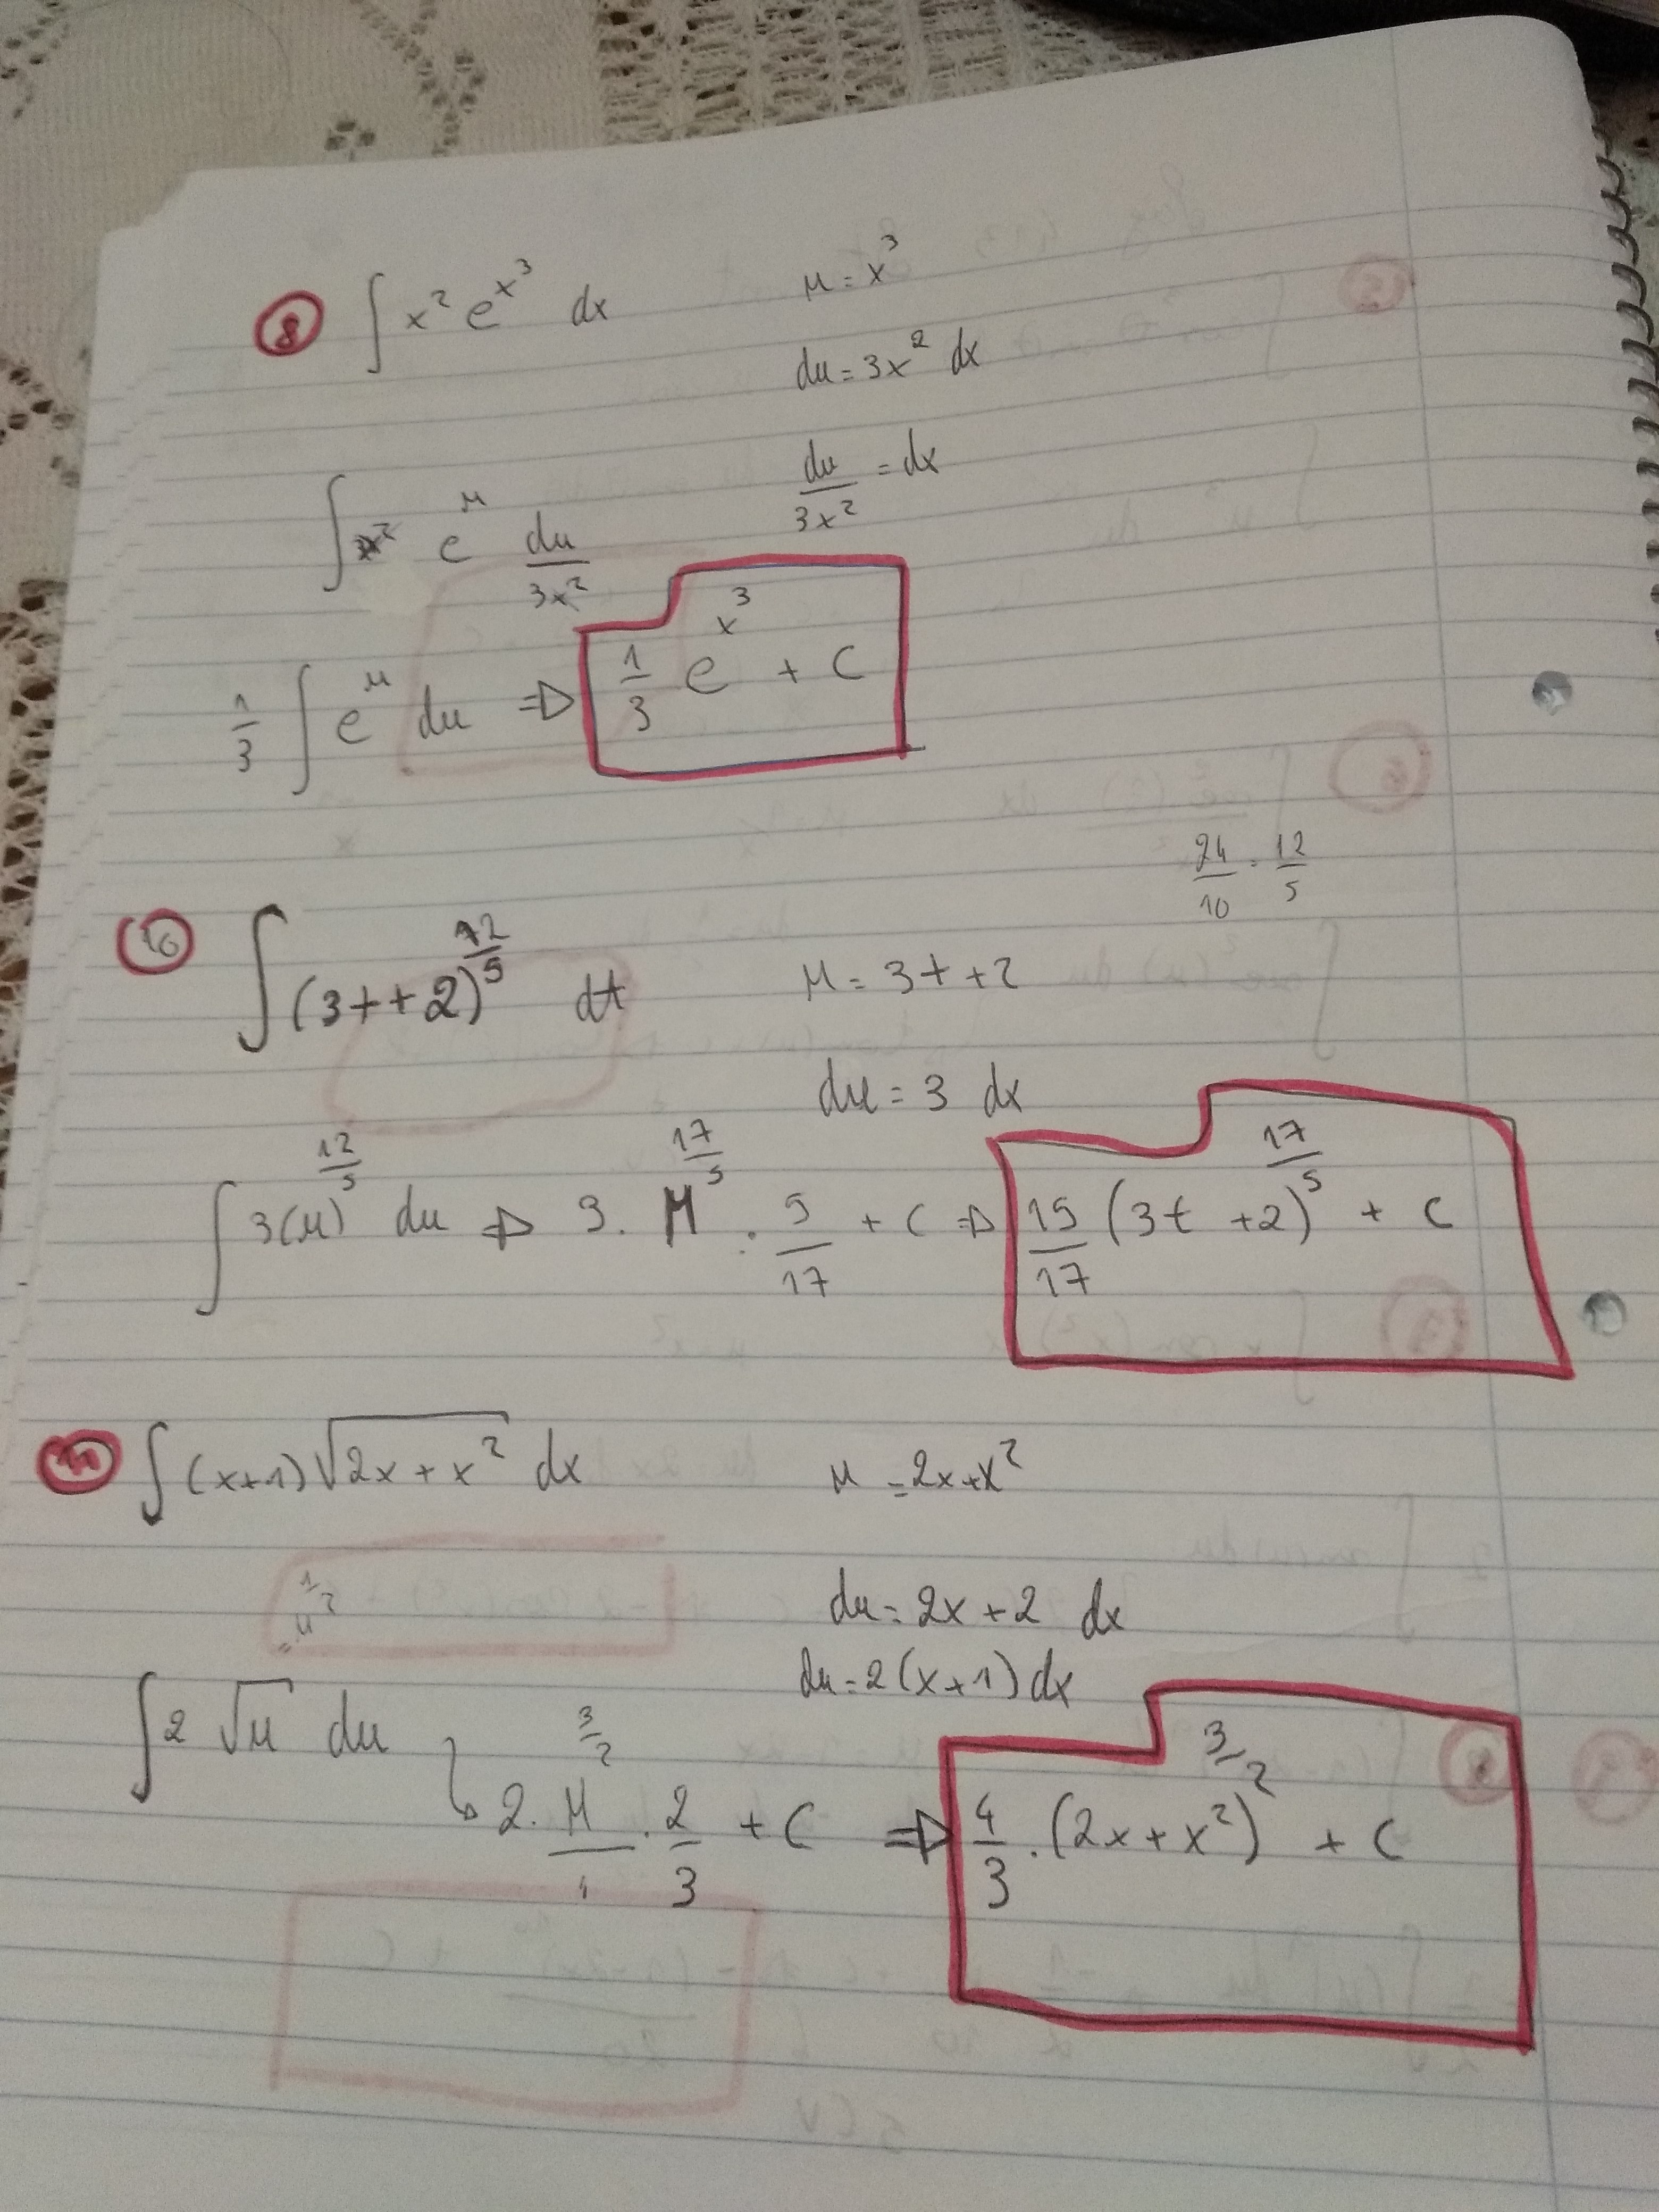 8 ∫ x² e^x³ dx μ = x³
du = 3x² dx
du/3x² = dx
∫ x² e^μ du/3x²
1/3 ∫ e^μ du ⇒ 1/3 e^x³ + C
24/10 = 12/5
10 ∫ (3t + 2)^12/5 dt μ = 3t + 2
du = 3 dx
∫ 3(μ)^12/5 du ⇒ 3 · μ^17/5 · 5/17 + C ⇒ 15/17 (3t + 2)^17/5 + C
11 ∫ (x+1) √2x + x² dx μ = 2x + x²
= μ^1/2 du = 2x + 2 dx
du = 2(x + 1) dx
∫ 2 √μ du
↳ 2 · μ^3/2 / 1 · 2/3 + C ⇒ 4/3 · (2x + x²)^3/2 + C